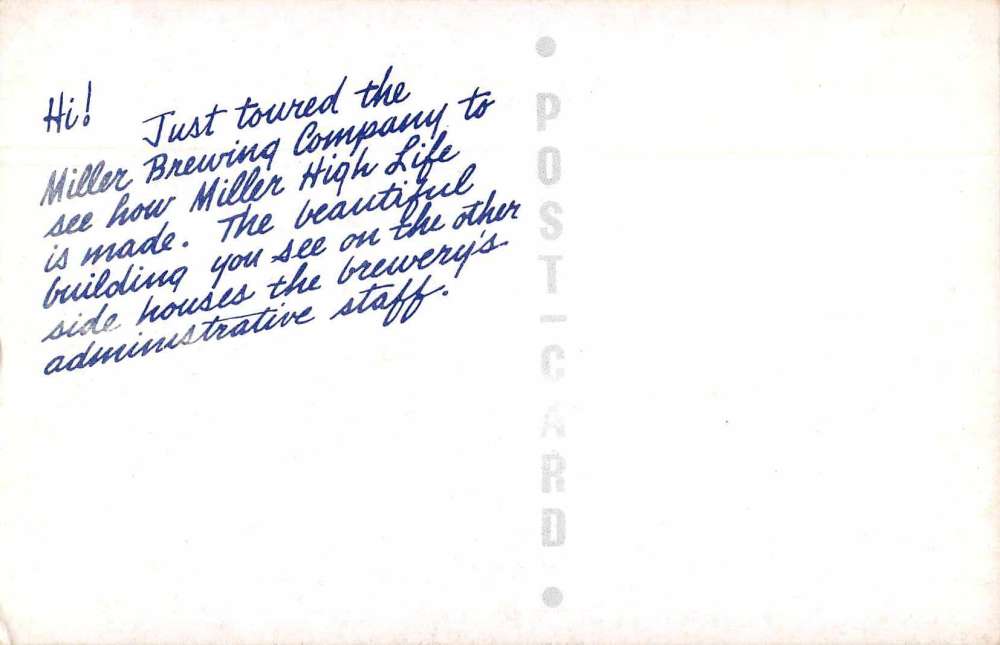 Hi!
Just toured the
Miller Brewing Company to
see how Miller High Life
is made. The beautiful
building you see on the other
side houses the brewery's
administrative staff.
POST-CARD